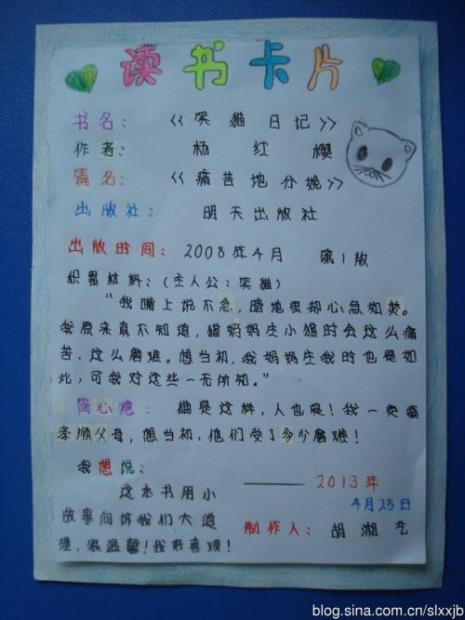 读书卡片
书名：《笑猫日记》
作者：杨红樱
篇名：《痛苦地分娩》
出版社：明天出版社
出版时间：2008年4月 第1版
积累材料：（主人公：笑猫）
“我嘴上说不急，暗地里却心急如焚。
我原来真不知道，猫妈妈生小猫时会这么痛
苦，这么磨难。想当初，我妈妈生我时也是如
此，可我对这些一无所知。”
心息：猫是这样，人也是！我一定要
孝顺父母，想当初，他们受了多少磨难！
我想说：
这本书用小
故事告诉我们大道
理，很温馨！我好喜欢！
——2013年
4月25日
制作人：胡湘艺
blog.sina.com.cn/slxxjb